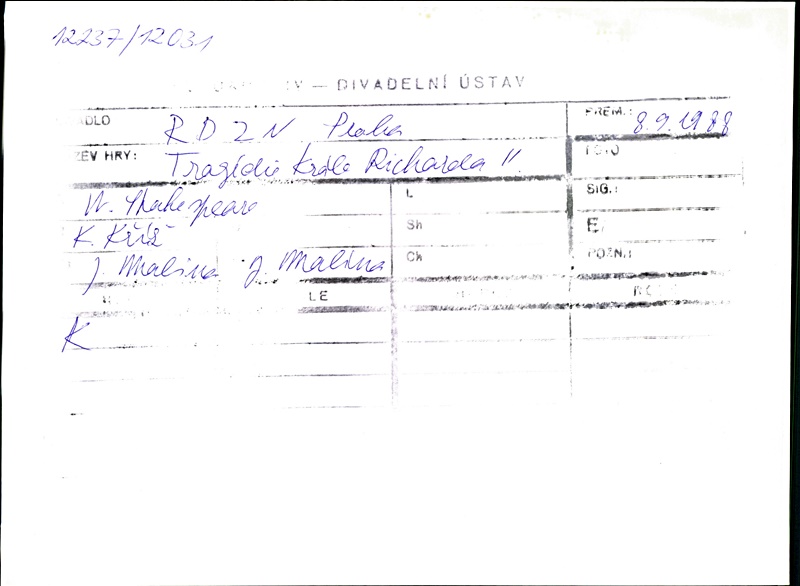 12237/12031
— DIVADELNÍ ÚSTAV
DLO R D Z N Praha PREM.: 8.9.1988
ZEV HRY: Tragédie Krále Richarda II. FOTO
W. Shakespeare L SIG.:
K. Kříž Sh E
J. Malina J. Malina Ch POZN.:
LE
K